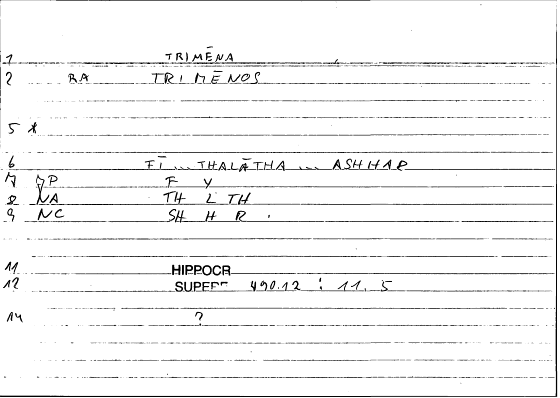 1 TRIMĒNA
2 RA TRIMĒNOS
5 *
6 FĪ ... THALĀTHA ... ASHHAR
7 JP F Y
8 NA TH L TH
9 NC SH H R .
11 HIPPOCR
12 SUPERF 490.12 : 11.5
14 ?